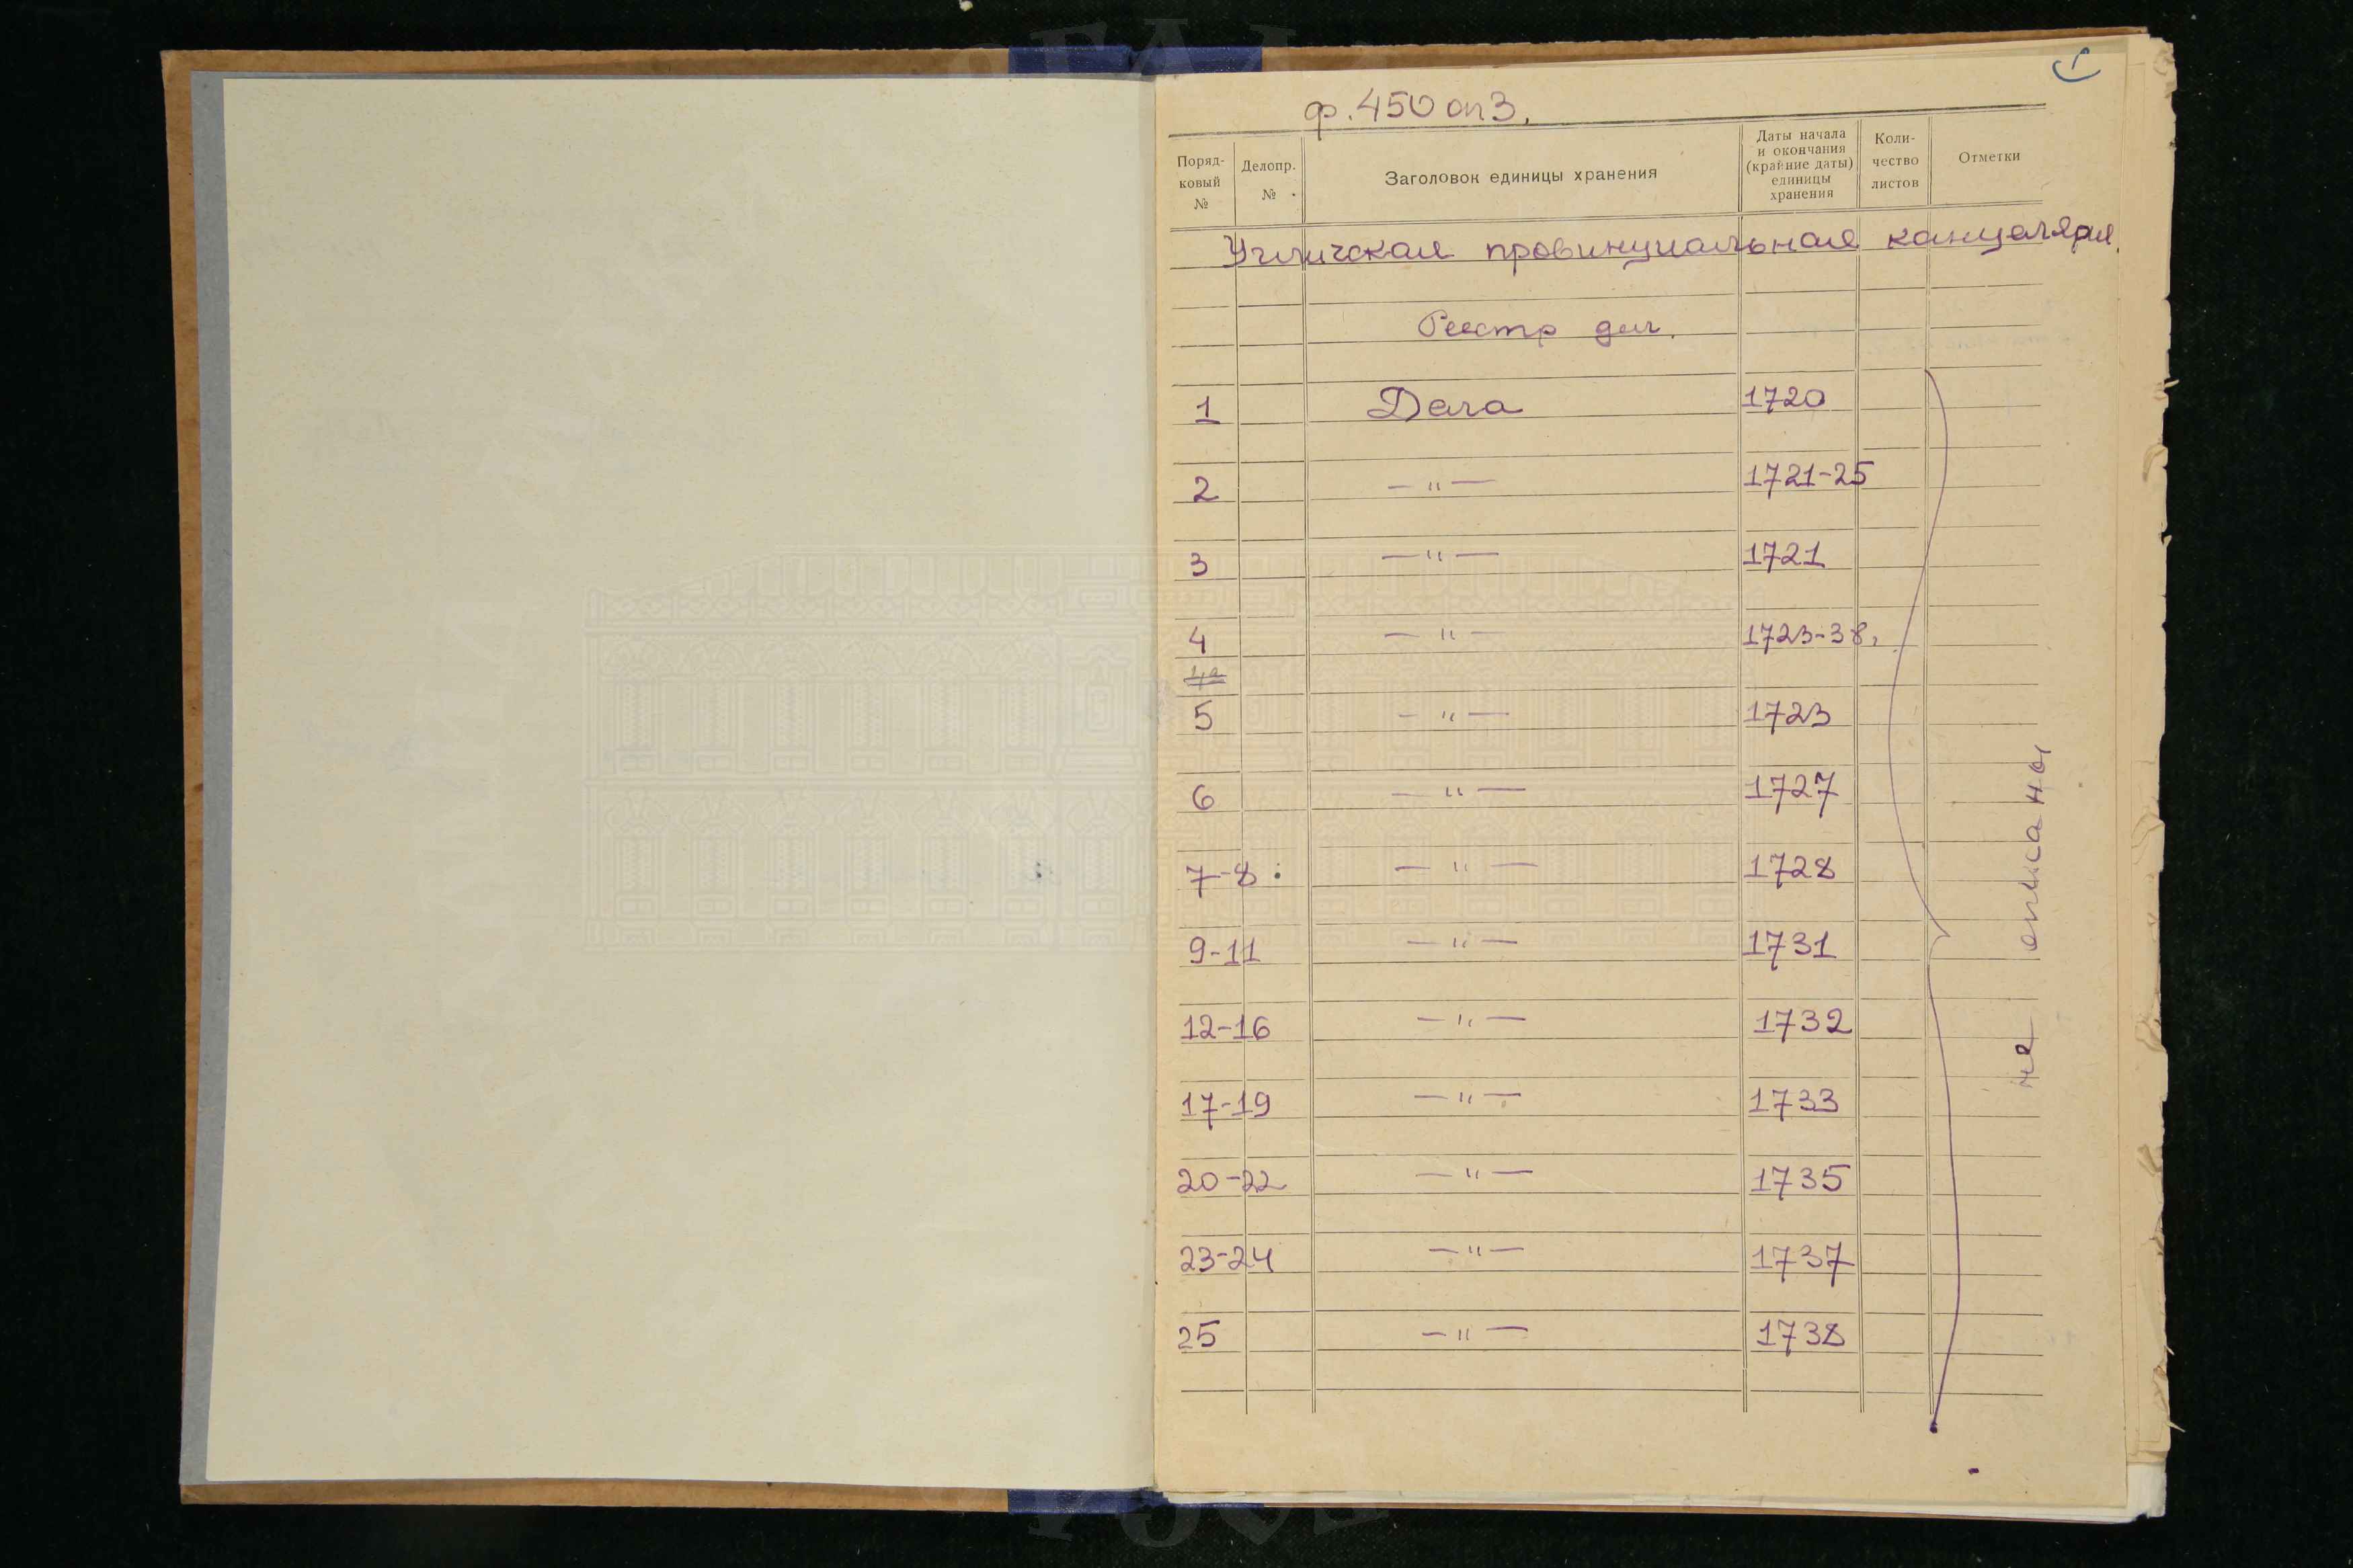 1
ф. 450 оп 3.
Поряд-
ковый
№
Делопр.
№
Заголовок единицы хранения
Даты начала
и окончания
(крайние даты)
единицы
хранения
Коли-
чество
листов
Отметки
Угличская провинциальная канцелярия.
Реестр дел.
1 Дела 1720
2 —"— 1721-25
3 —"— 1721
4 —"— 1723-38.
4а
5 —"— 1723
6 —"— 1727
7-8 —"— 1728
9-11 —"— 1731
12-16 —"— 1732
17-19 —"— 1733
20-22 —"— 1735
23-24 —"— 1737
25 —"— 1738
не описаны